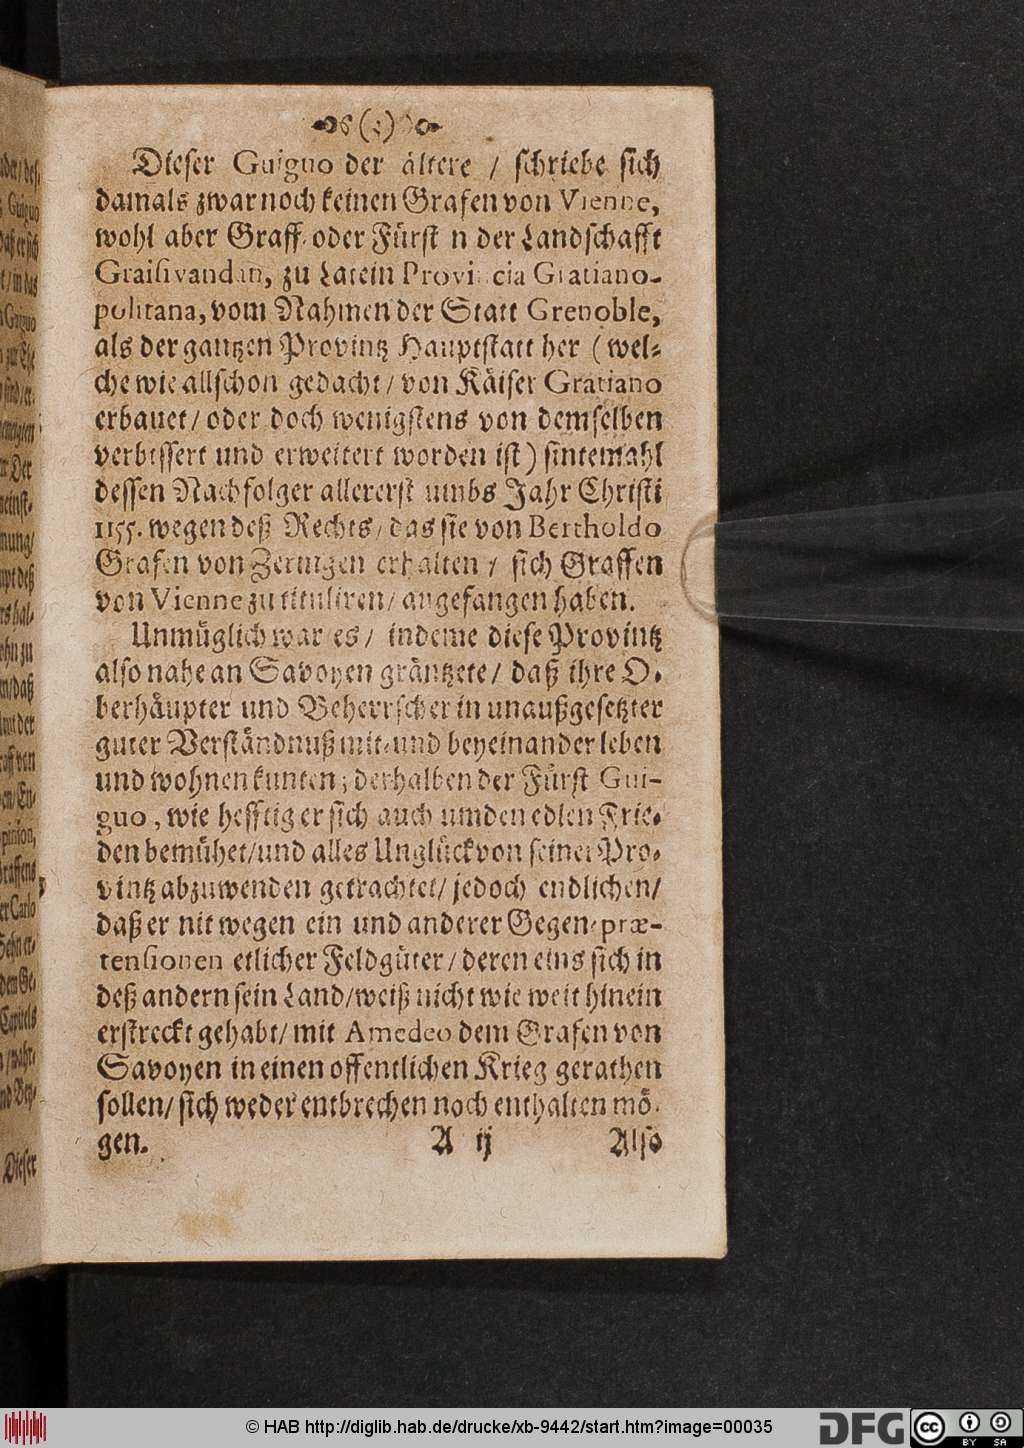 (3)
Dieser Guiguo der ältere / schriebe sich
damals zwar noch keinen Grafen von Vienne,
wohl aber Graff- oder Fürst n der Landschafft
Graisivandan, zu Latein Provincia Gratiano-
politana, vom Nahmen der Statt Grenoble,
als der gantzen Provintz Hauptstatt her (wel-
che wie allschon gedacht / von Käiser Gratiano
erbauet / oder doch wenigstens von demselben
verbessert und erweitert worden ist) sintemahl
dessen Nachfolger allererst umbs Jahr Christi
1155. wegen deß Rechts / das sie von Bertholdo
Grafen von Zeringen erhalten / sich Graffen
von Vienne zu tituliren / angefangen haben.
Unmüglich war es / indeme diese Provintz
also nahe an Savoyen gräntzete / daß ihre O-
berhäupter und Beherrscher in unaußgesetzter
guter Verständnuß mit- und beyeinander leben
und wohnen kunten; derhalben der Fürst Gui-
guo, wie hefftig er sich auch um den edlen Frie-
den bemühet / und alles Unglück von seiner Pro-
vintz abzuwenden getrachtet / jedoch endlichen /
daß er nit wegen ein und anderer Gegen-præ-
tensionen etlicher Feldgüter / deren eins sich in
deß andern sein Land / weiß nicht wie weit hinein
erstreckt gehabt / mit Amedeo dem Grafen von
Savoyen in einen offentlichen Krieg gerathen
sollen / sich weder entbrechen noch enthalten mö-
gen. A ij Also
Dieser
© HAB http://diglib.hab.de/drucke/xb-9442/start.htm?image=00035
DFG
cc BY SA